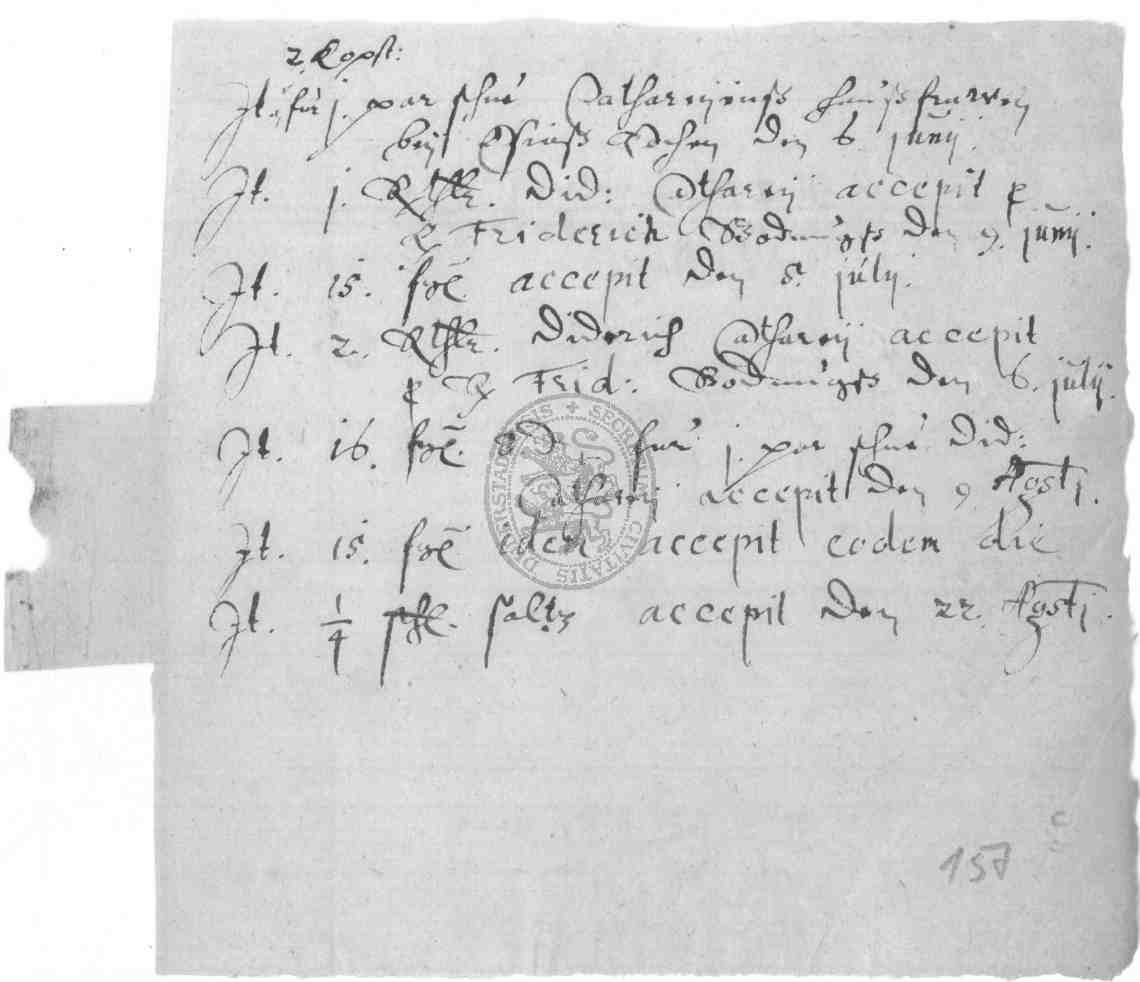 2. Kopst:
It. für j. par schue Catharijenß haußfrawen
beij den 6. junij.
It. j. Rthlr. Did: Catharij accepit p
H Friderich Bodmügß den 9. junij.
It. 15. sgl. accepit den 8. julij.
It. 2. Rthlr. Diderich Catharij accepit
p H Frid: Bodmügß den 6. julij.
It. 16. sgl. fur j. par schue Did:
Catharij accepit den 9 Agsti.
It. 15. sgl. idem accepit eodem die
It. 1/4 saltz accepit den 22. Agsti.
SECRETUM CIVITATIS
157